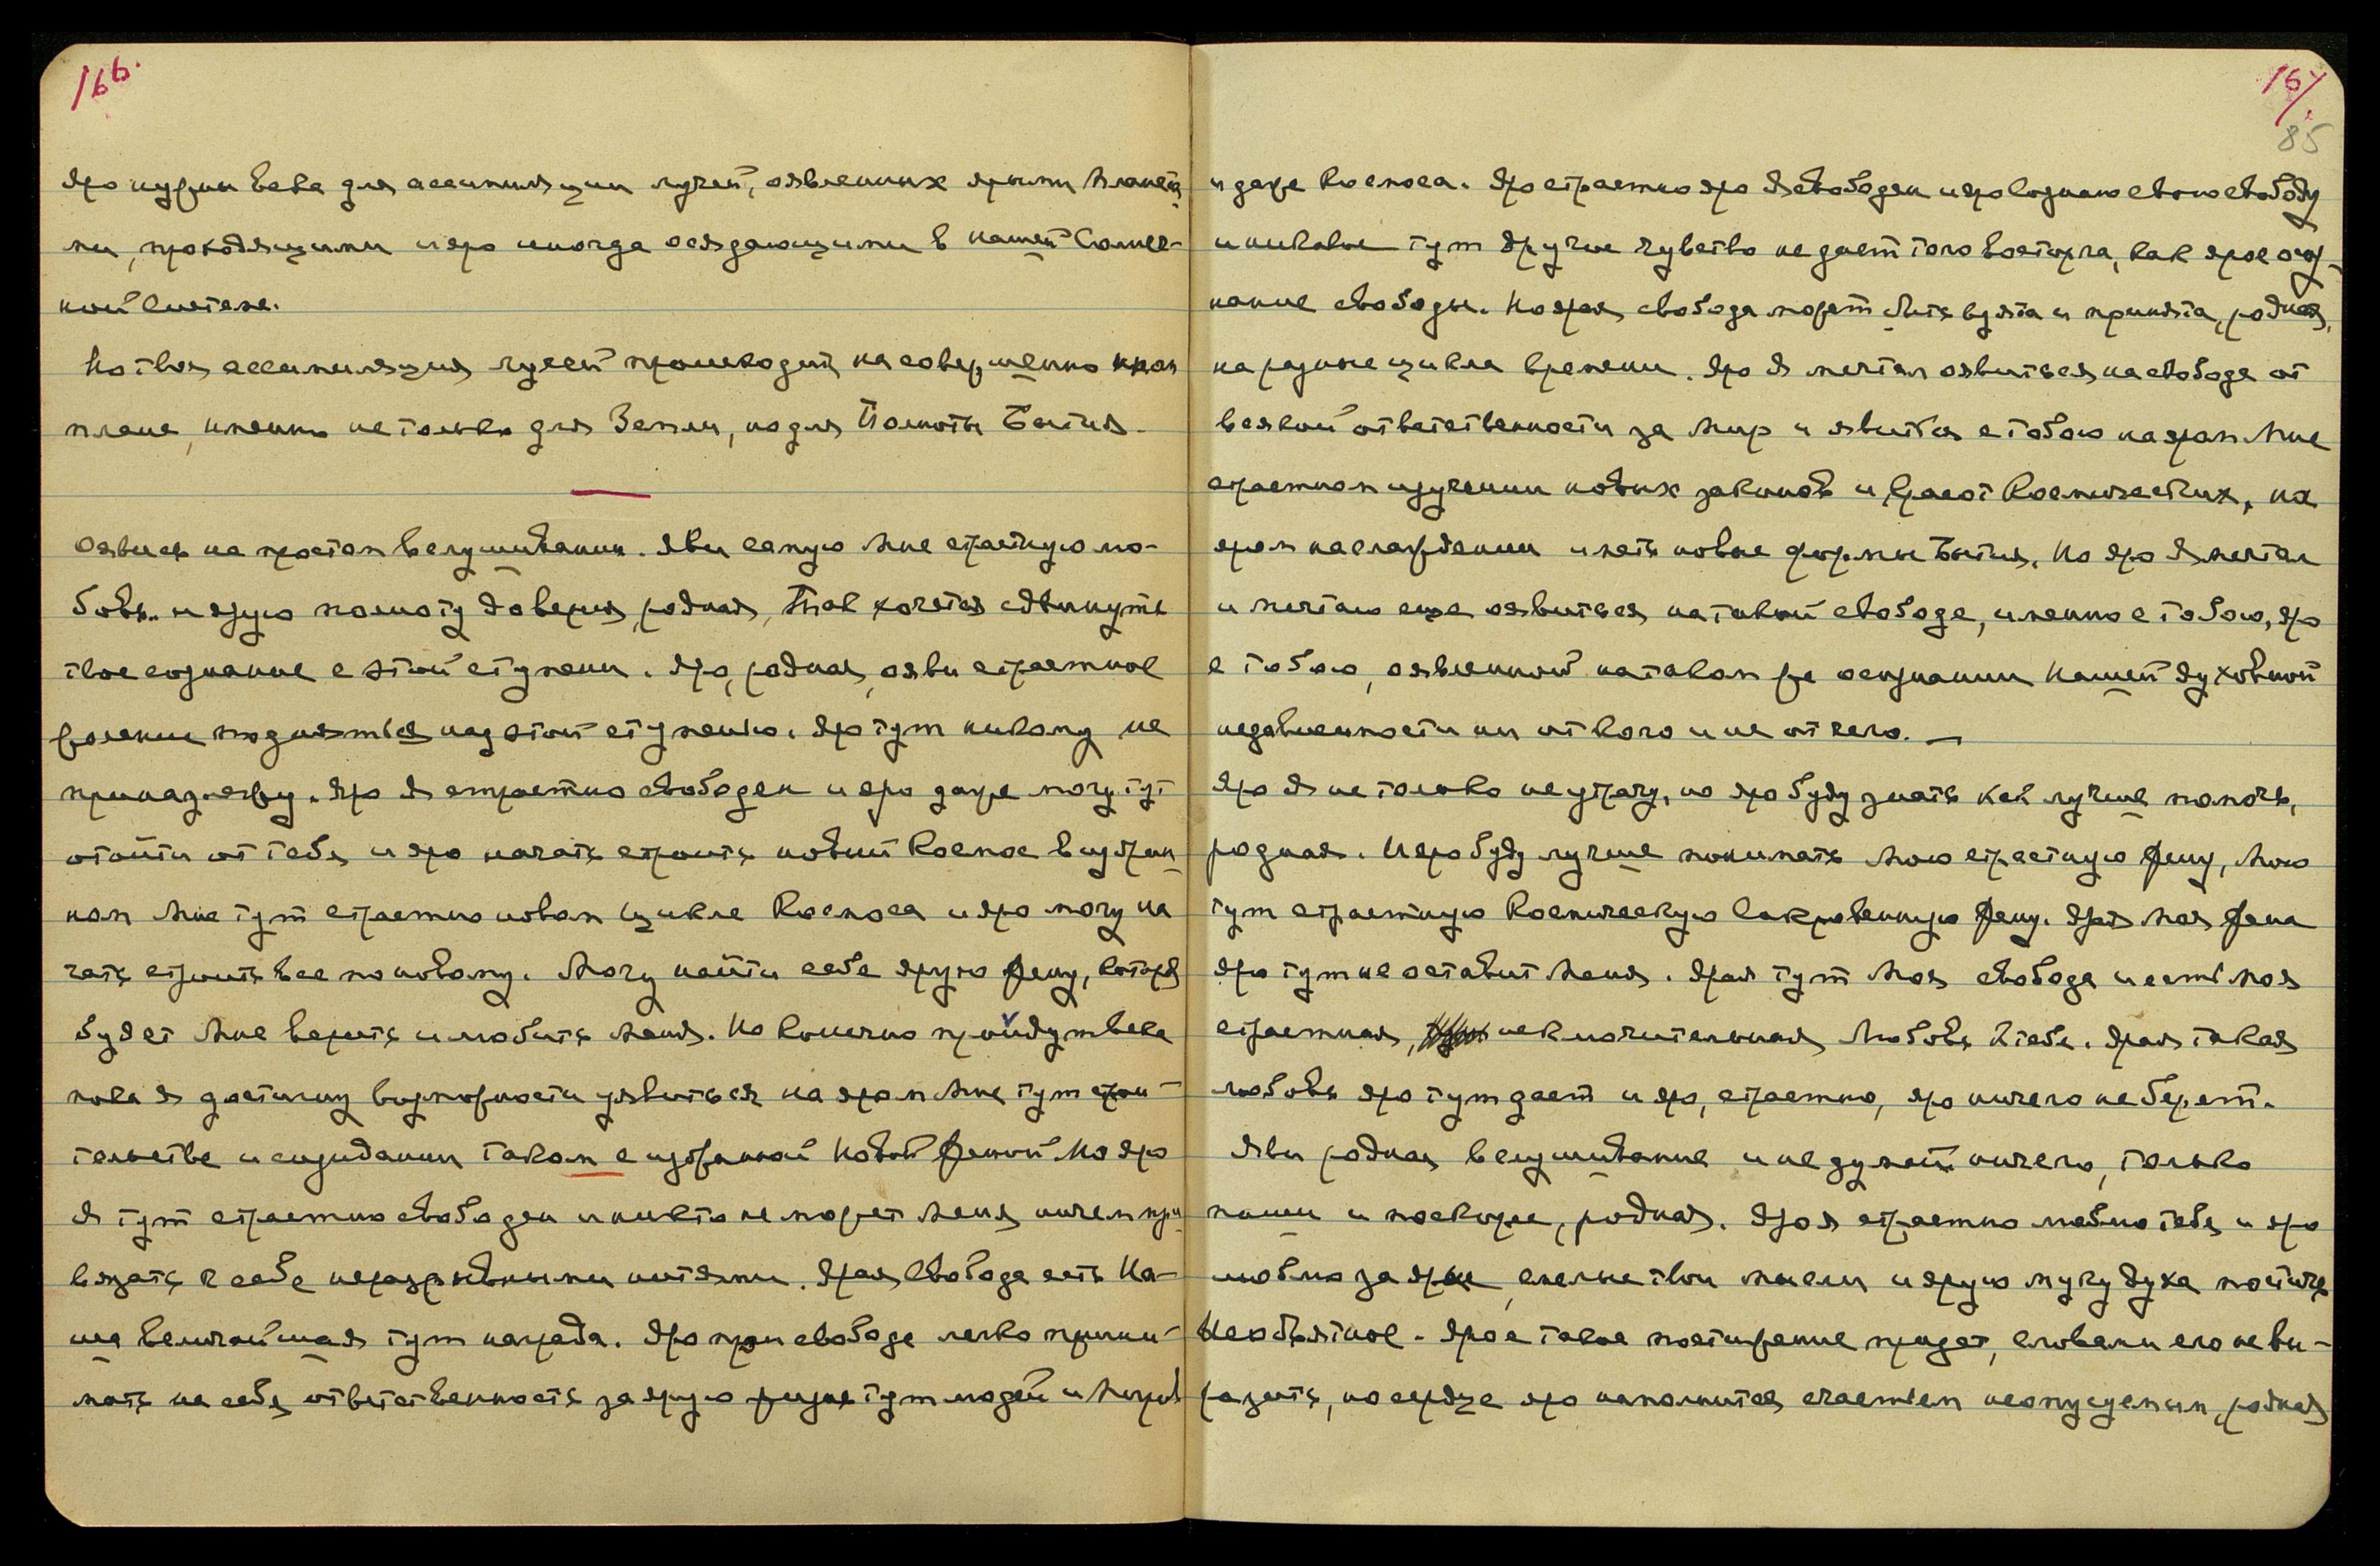 166.
Яро нужны века для ассимиляции лучей, оявленных ярыми Планета-
ми, проходящими и яро иногда оседающими в нашей Солнеч-
ной Системе.
Но твоя ассимиляция лучей происходит на совершенно ином
плане, именно не только для Земли, но для Полноты Бытия.
Оявись на простом вслушивании. Яви самую Мне страстную лю-
бовь и ярую полноту доверия, родная, Так хочется сдвинуть
твое сознание с этой ступени. Яро, родная, ояви страстное
желание подняться над этой ступенью. Яро тут никому не
принадлежу. Яро Я страстно свободен и яро даже могу тут
отойти от тебя и яро начать строить новый Космос в избран-
ном Мне тут страстно новом цикле Космоса и яро могу на
чать строить все по новому. Могу найти себе ярую Жену, которая
будет Мне верить и любить Меня. Но конечно пройдут века
пока Я достигну возможности уявиться на яром Мне тут строи-
тельстве и созидании таком с избранной Новой Женой. Но яро
Я тут страстно свободен и никто не может Меня ничем при-
вязать к себе неразрывными нитями. Ярая Свобода есть На-
ша величайшая тут награда. Яро при свободе легко прини-
мать на себя ответственность за ярую жизнь тут людей и Миров
167.
85
и даже Космоса. Яро страстно яро Я свободен и яро сознаю свою свободу
и никакое тут другое чувство не дает того восторга, как ярое осоз-
нание свободы. Но ярая свобода может быть взята и принята, родная,
на разные цикла времени. Яро Я мечтал оявиться на свободе от
всякой ответственности за Мир и явиться с тобою на яром Мне
страстном изучении новых законов и Красот Космических, на
яром наслаждении иметь новые формы Бытия. Но яро Я мечтал
и мечтаю еще оявиться на такой свободе, именно с тобою, яро
с тобою, оявленной на таком же осознании Нашей духовной
независимости ни от кого и не от чего. —
Яро Я не только не утрачу, но яро буду знать как лучше помочь,
родная. И яро буду лучше понимать Мою страстную Жену, Мою
тут страстную Космическую Сокровенную Жену. Ярая Моя Жена
яро тут не оставит Меня. Ярая тут Моя свобода и есть Моя
страстная, исключительная Любовь к тебе. Ярая такая
любовь яро тут дает и яро, страстно, яро ничего не берет.
Яви родная вслушивание и не думай ничего, только
пиши и поскорее, родная. Яро Я страстно люблю тебя и яро
люблю за ярые, смелые твои мысли и ярую муку духа постичь
Необъятное. Ярое такое постижение придет, словами его не вы-
разить, но сердце яро наполнится счастьем неописуемым, родная